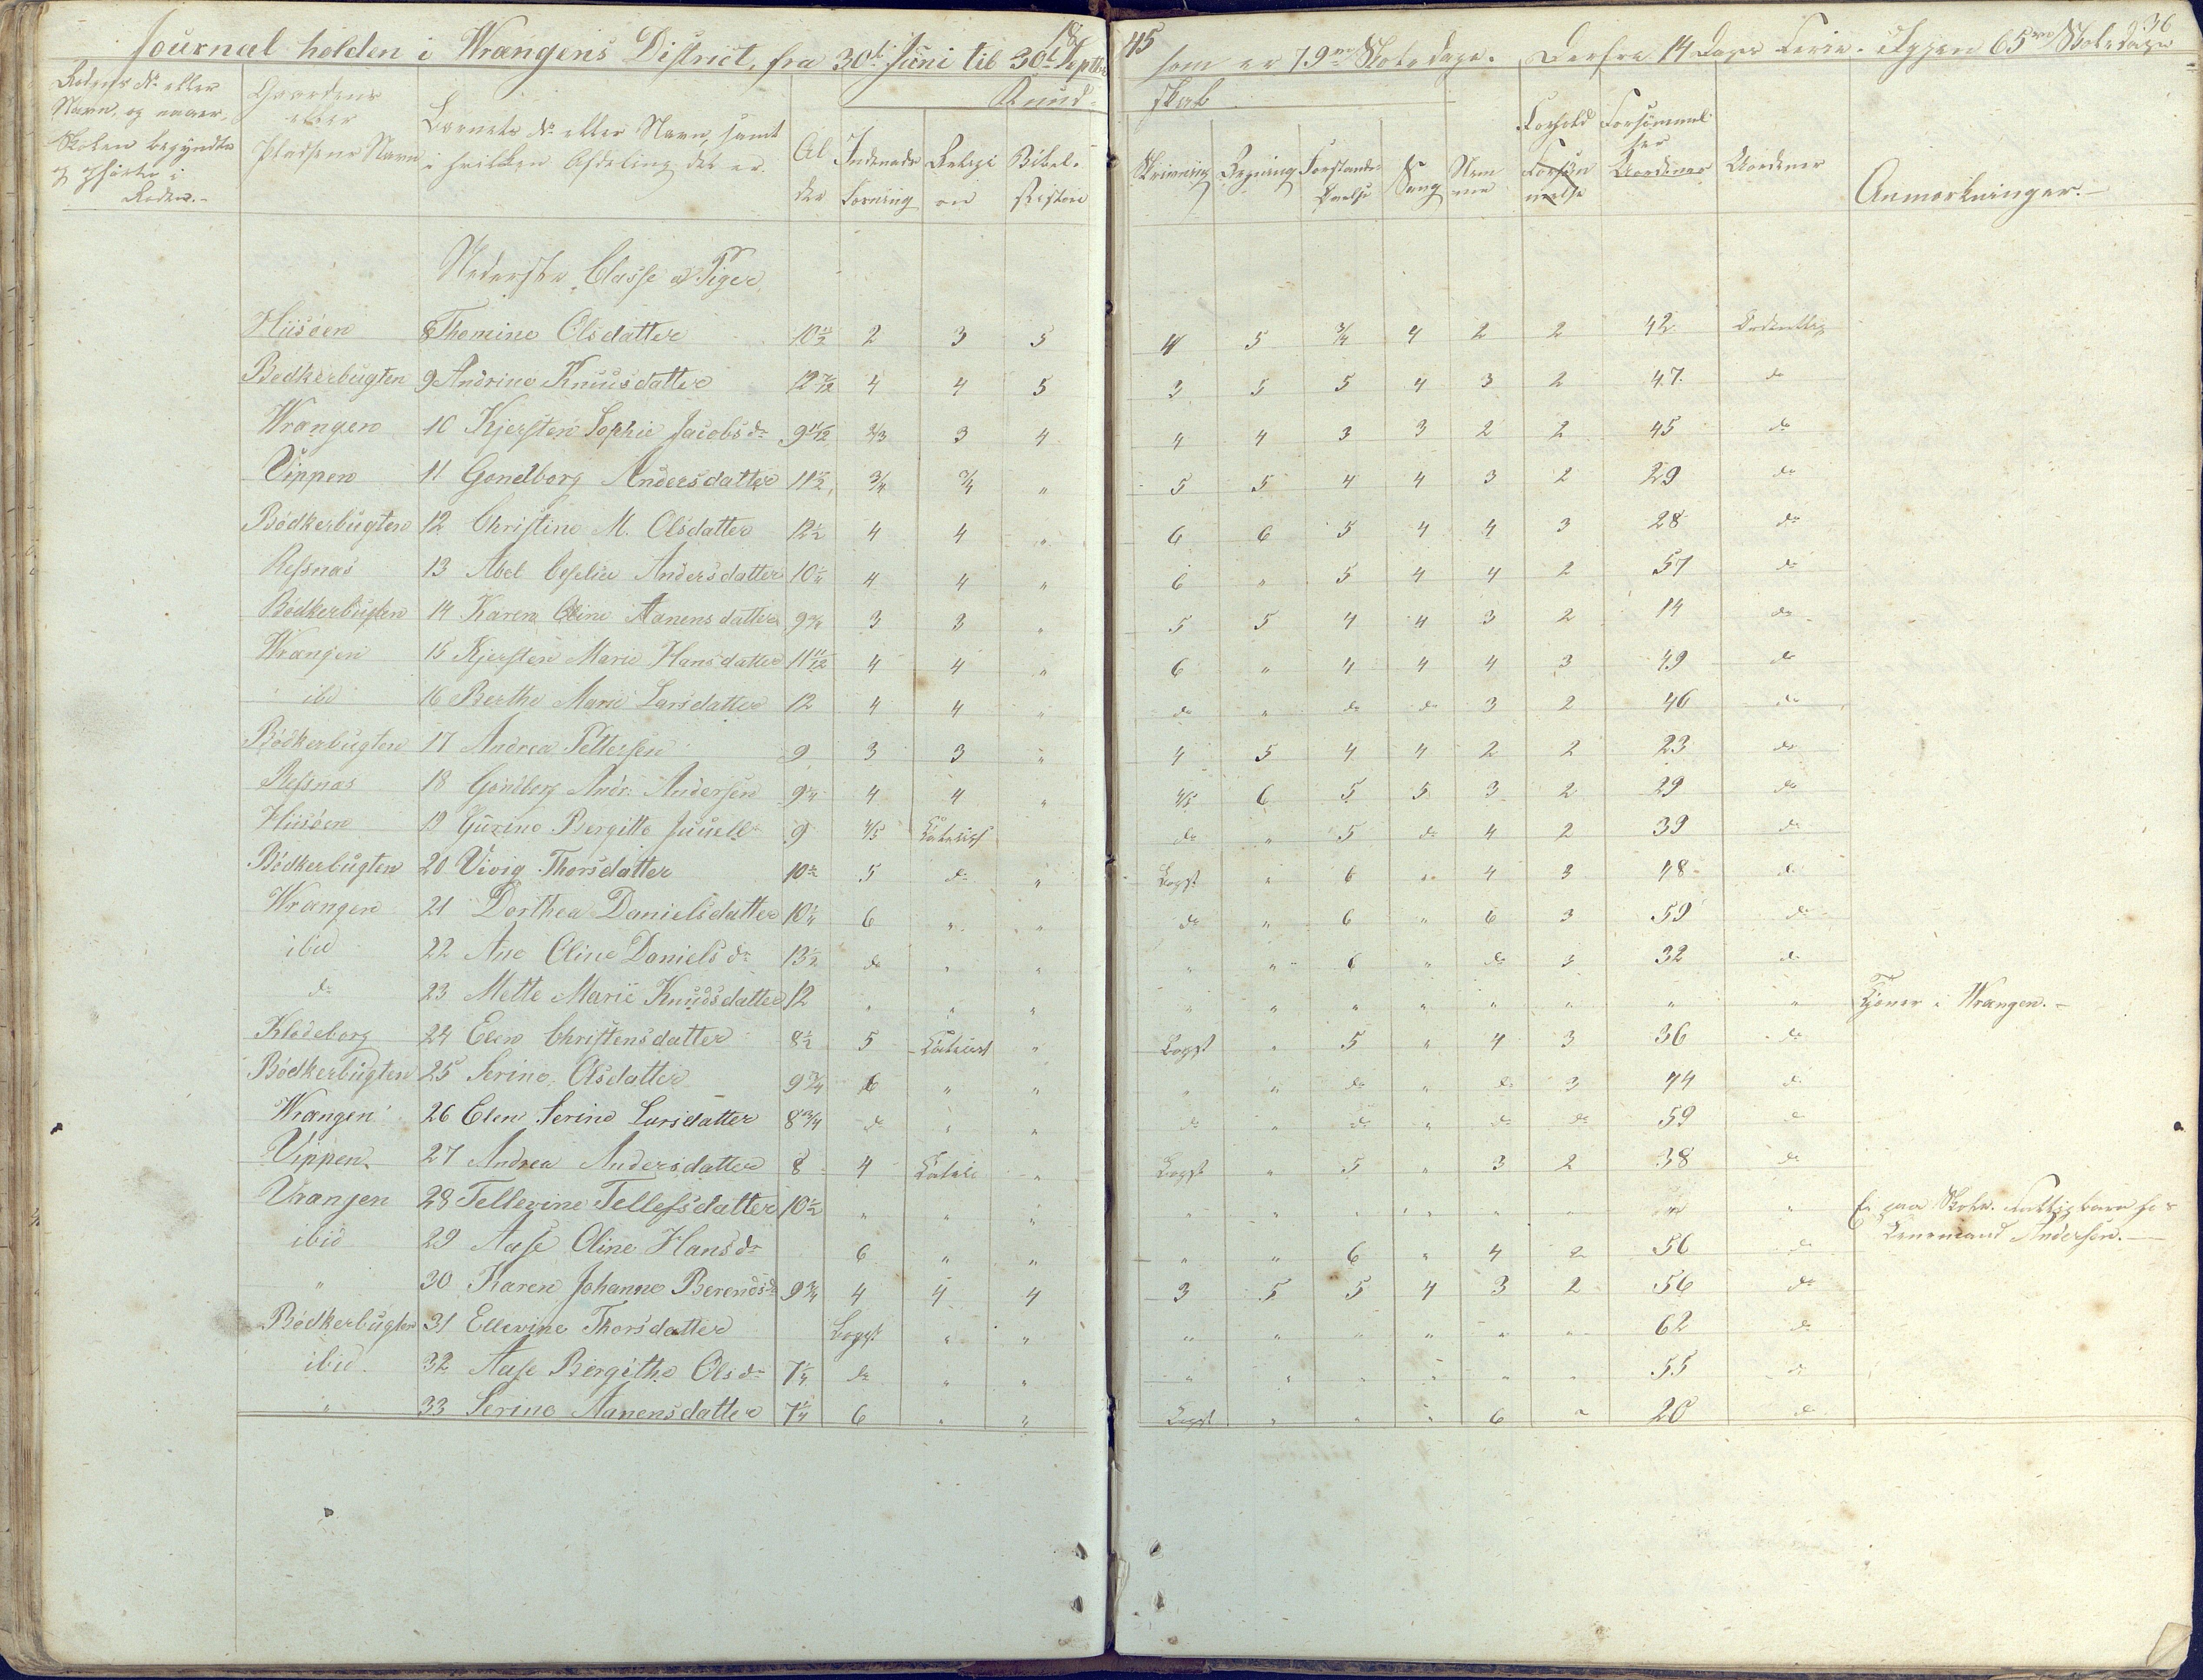 Journal holden i Wrangens District, fra 30te Juni til 30te Septbr 1845 som er 79 Skoledage. Derfra 14 Dage Ferie. Igjen 65 Skoledage
36
Rodens No eller Navn, og naar Skolen begyndte og ophørte i Roden.
Gaardens eller Pladsens Navn
Barnets No eller Navn, samt i hvilken Afdeling det er.
Alder
Kundskab
Indenadslæsning
Religion
Bibelhistorie
Skrivning
Regning
Forstands Øvelse
Sang
Nemme
Forhold
Forsømmelser
Uordener
Anmærkninger.
Nederste Classe af Piger
Hiisöen 8 Thomine Olsdatter 10 11/12 2 3 5 4 5 3/4 4 2 2 42 Ordentlig
Bødkerbugten 9 Andrine Knudsdatter 12 7/12 4 4 5 3 5 5 4 3 2 47 do
Wrangen 10 Kjersten Sophie Jacobsdr 9 11/12 2/3 3 4 4 4 3 3 2 2 45 do
Vippen 11 Gondborg Andersdatter 11 1/2 3/4 3/4 " 5 5 4 4 3 2 29 do
Bödkerbugten 12 Christine M. Olsdatter 12 1/2 4 4 " 6 6 5 4 4 3 28 do
Ressnæs 13 Abel Cecelia Andersdatter 10 1/4 4 4 " 6 " 5 4 4 2 57 do
Bödkerbugten 14 Karen Oline Aanensdatter 9 3/4 3 3 " 5 5 4 4 3 2 14 do
Wrangen 15 Kjersten Marie Hansdatter 11 11/12 4 4 " 6 " 4 4 4 3 49 do
ibd 16 Berthe Marie Larsdatter 12 4 4 " do " do do 3 2 46 do
Bödkerbugten 17 Andrea Pettersen 9 3 3 " 4 5 4 4 2 2 23 do
Ressnæs 18 Gondborg Andr. Andersen 9 1/4 4 4 " 4/5 6 5 5 3 2 29 do
Hiisöen 19 Gurine Bergitte Juuell 9 4/5 do " 5 do 4 2 39 do
Bödkerbugten 20 Vivig Thorsdatter 10 1/2 5 do " Bogst " 6 " 4 3 48 do
Wrangen 21 Dorthea Danielsdatter 10 1/4 6 " " do " 6 " 6 3 59 do
ibid 22 Ane Oline Daniels dr 13 1/2 do " " " " 6 " do 3 32 do
do 23 Mette Marie Knudsdatter 12 " " " " " " " " " " " Tjener i Wrangen.
Klödeborg 24 Elen Christensdatter 8 1/2 5 " Bogst " 5 " 4 3 36 do
Bödkerbugten 25 Serine Olsdatter 9 3/4 6 " " " " do " do 3 44 do
Wrangen 26 Elen Serine Larsdatter 8 3/4 do " " do " do " do do 59 do
Vippen 27 Andrea Andersdatter 8 4 " Bogst " 5 " 3 2 38 do
Vrangen 28 Tellevine Tellefsdatter 10 1/2 " " " " " " " " " " " Ei paa Skole. Fattigbarn hos Lensmand Andersen.
ibid 29 Aase Oline Hansdr 6 " " " " 6 " 4 2 56 do
" 30 Karen Johanne Berendsdr 9 3/4 4 4 4 3 5 5 4 3 2 56 do
Bödkerbugten 31 Ellevine Thorsdatter Bogst " " " " " " " " 62 do
ibid. 32 Aase Bergithe Olsdr 7 1/4 do " " " " " " " " 55 do
" 33 Serine Aanensdatter 7 1/4 6 " " Bogst " " " 6 " 20 do